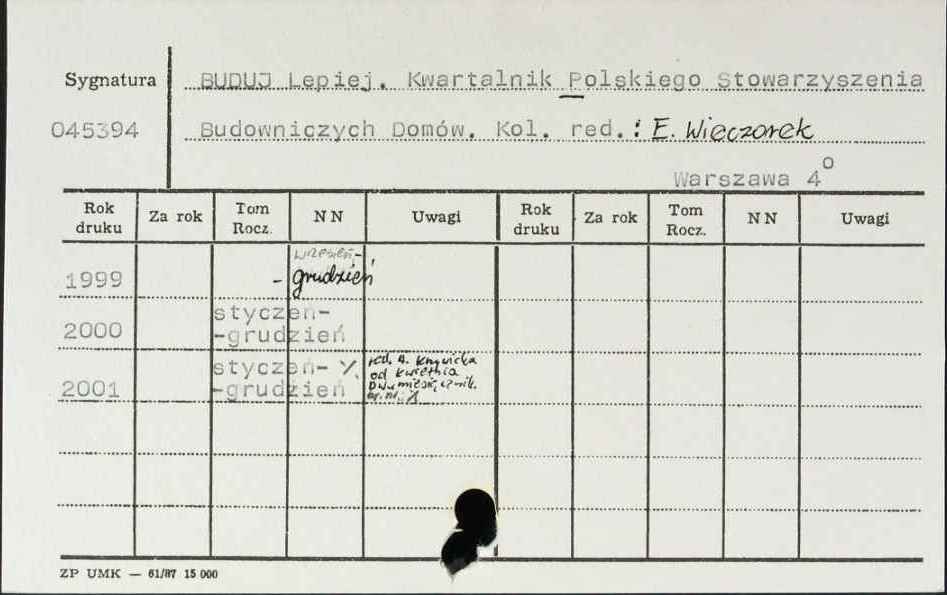 Sygnatura BUDUJ Lepiej. Kwartalnik Polskiego Stowarzyszenia
045394 Budowniczych Domów. Kol. red.: E. Wieczorek
Warszawa 4°
Rok druku Za rok Tom Rocz. NN Uwagi Rok druku Za rok Tom Rocz. NN Uwagi
wrzesień-
1999 - grudzień
styczeń-
2000 -grudzień
styczeń- red. A.
od kwietnia
2001 -grudzień Dwumiesięcznik.
ZP UMK — 61/87 15 000